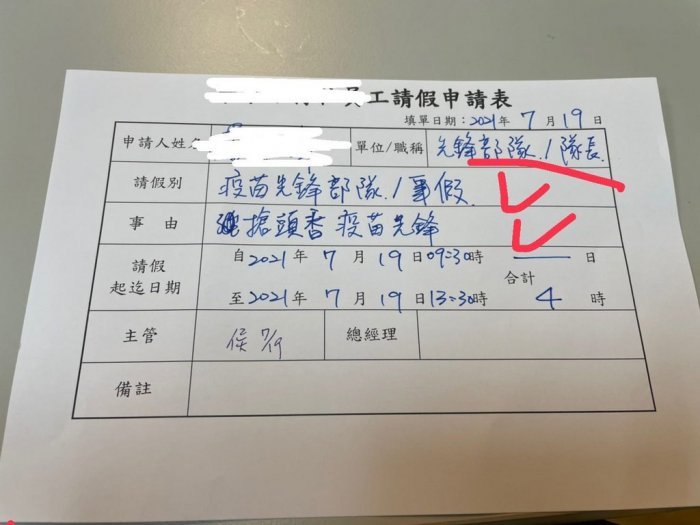 員工請假申請表
填單日期：2021年 7 月 19 日
申請人姓名 單位/職稱 先鋒部隊/隊長
請假別 疫苗先鋒部隊/事假
事由 搶頭香 疫苗先鋒
請假起迄日期
自 2021 年 7 月 19 日 09:30 時
至 2021 年 7 月 19 日 13:30 時
合計 — 日
4 時
主管 侯 7/19 總經理
備註